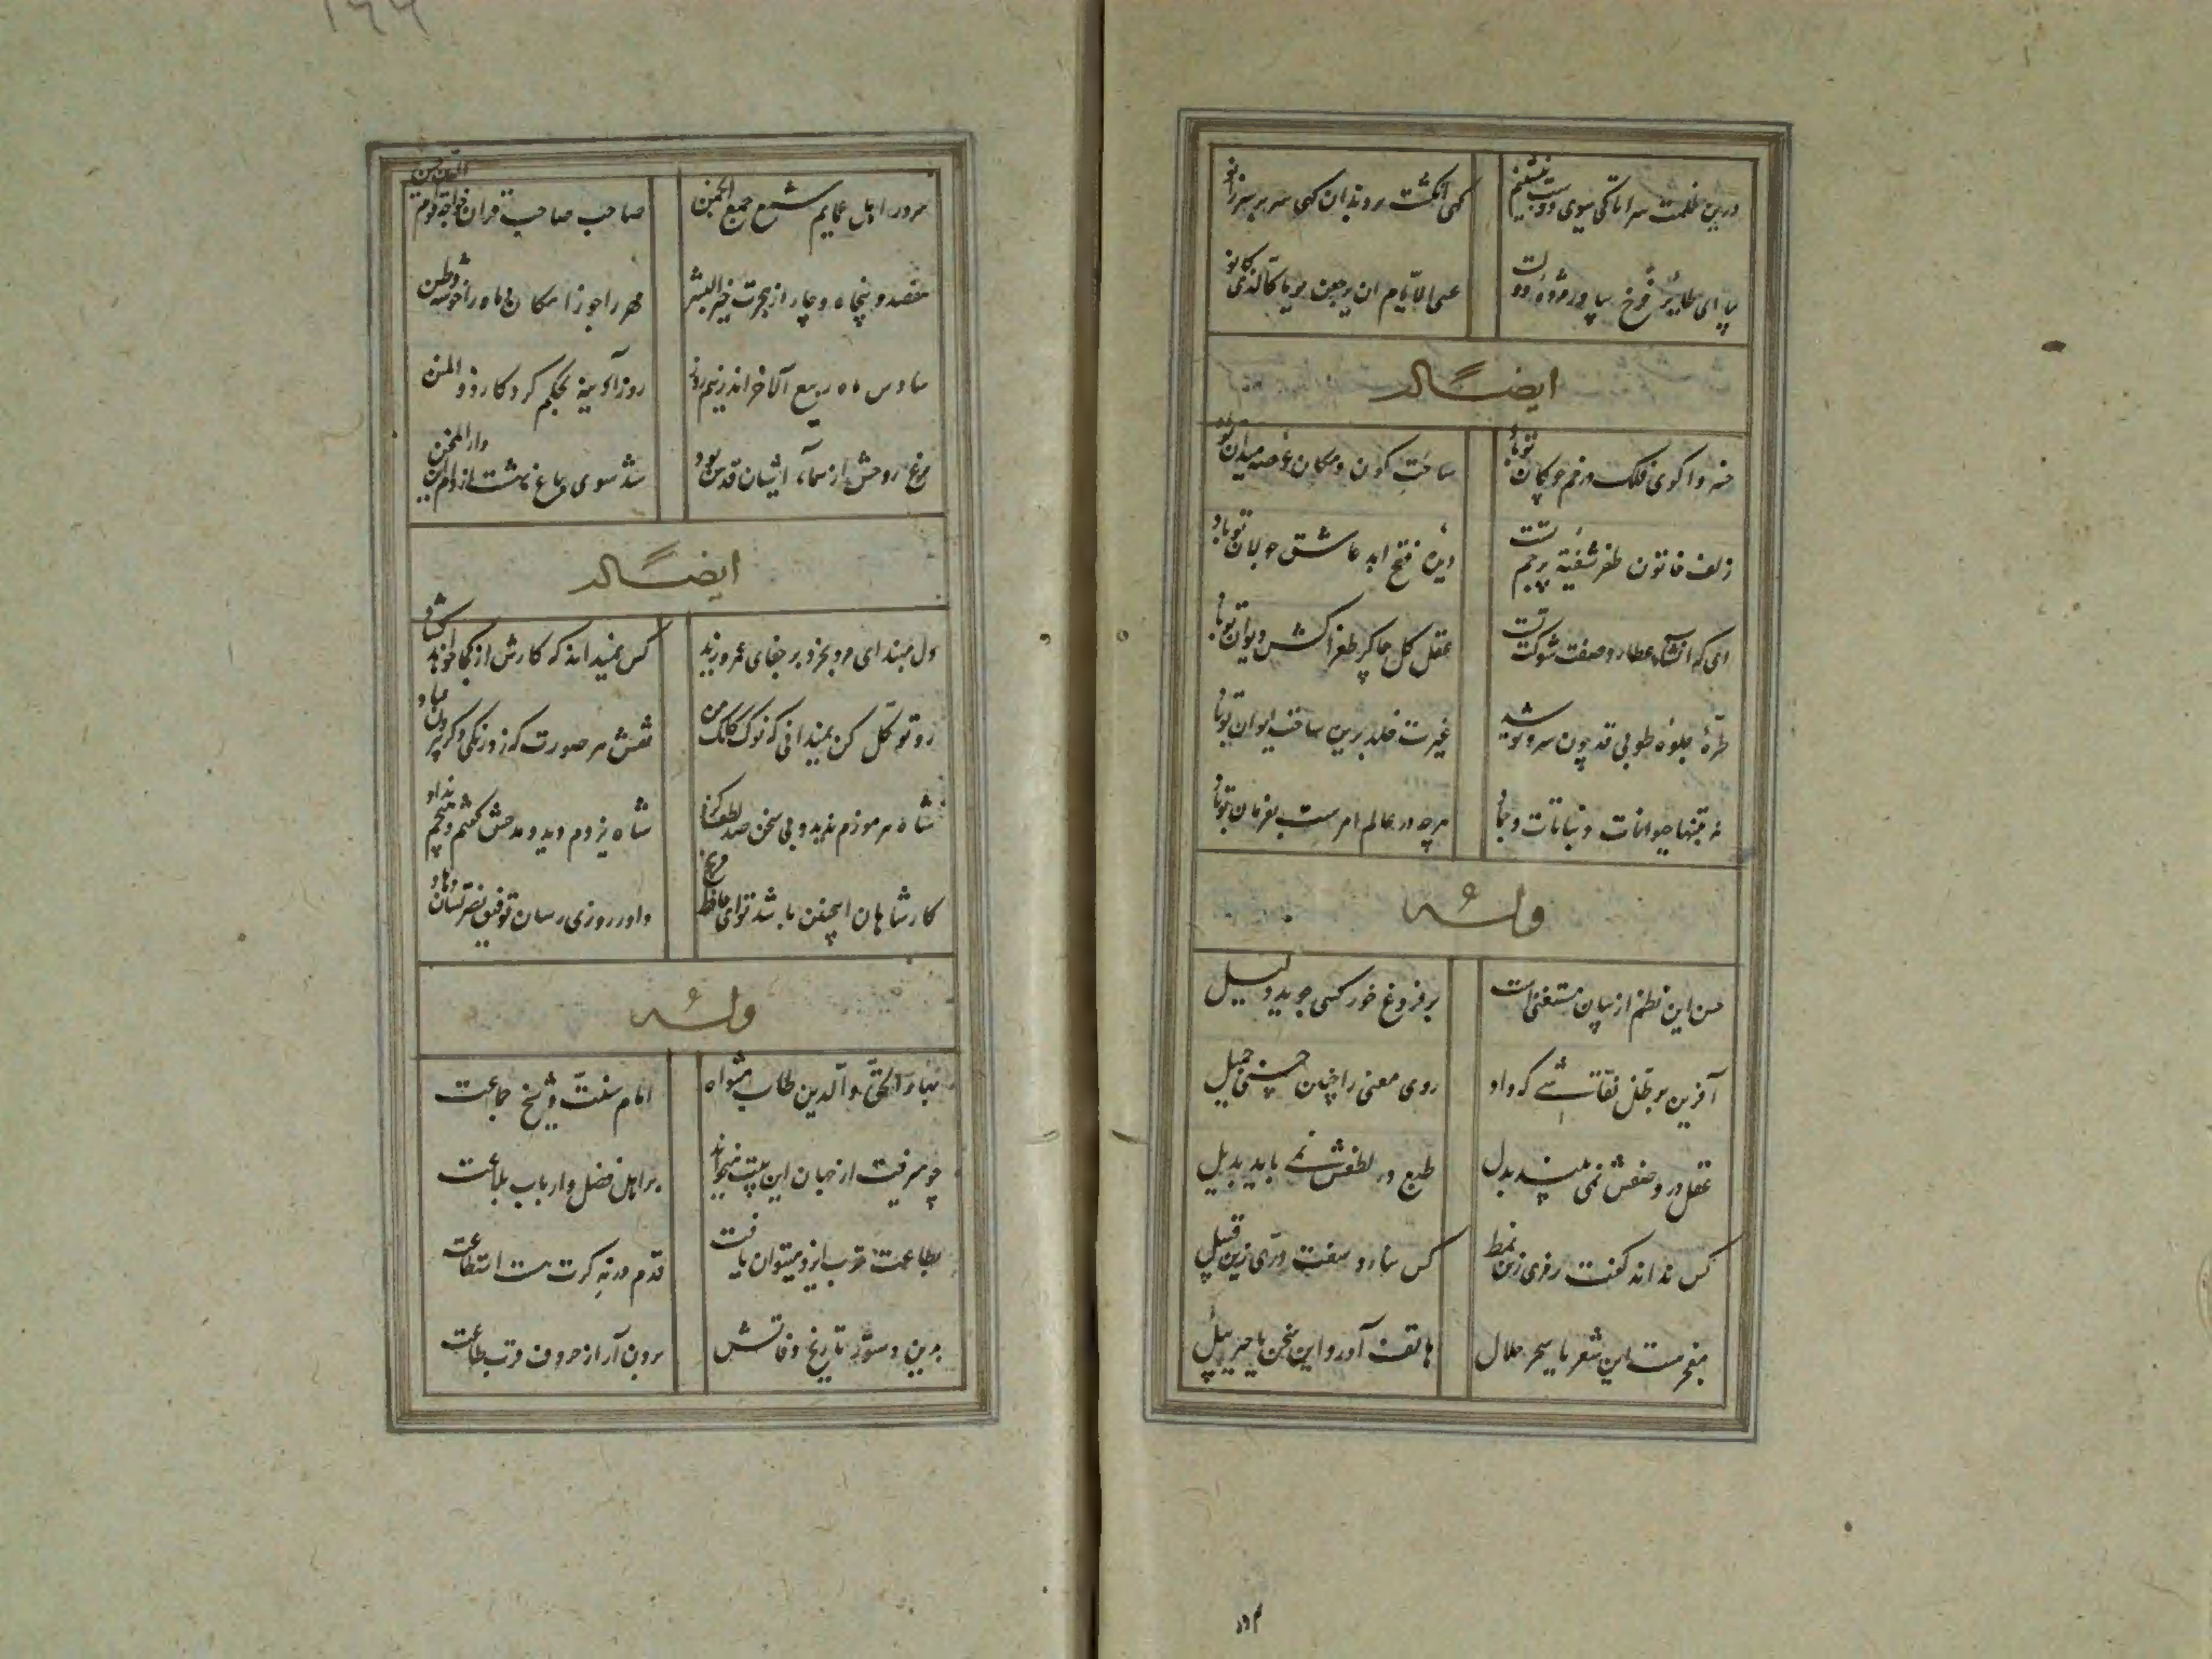 درین ظلمت سرا تا کی ببوی دوست بنشینم
کهی انکشت بر دندان کهی سر بر سر زانو
بیا ای طایر فرخ بیاور مژده دولت
عسی الایام ان یرجعن قوما کالذی کانو
ایضاً له
خسروا کوی فلک در خم چوکان تو باد
ساحت کون و مکان عرصه میدان تو باد
زلف خاتون ظفر شیفته پرچم تست
دیده فتح ابد عاشق جولان تو باد
ای که انشاء عطارد صفت شوکت تست
عقل کل چاکر طغراکش دیوان تو باد
طیره جلوه طوبی قد چون سرو تو شد
غیرت خلد برین ساحت ایوان تو باد
نه بتنها حیوانات و نباتات و جماد
هرچه در عالم امرست بفرمان تو باد
وله
حسن این نظم از بیان مستغنی است
بر فروغ خور کسی جوید دلیل
آفرین بر کلک نقاشی که داد
روی معنی را چنان حسنی جمیل
عقل در وصفش نمی بیند بدل
طبع در لطفش نمی یابد بدیل
کس نداند کفت رمزی زین نمط
کس نیارد سفت دری زین قبیل
معجزست این شعر یا سحر حلال
هاتف آورد این سخن یا جبرییل
سرور اهل عمایم شمع جمع انجمن
صاحب صاحب قران خواجه قوام الدین حسن
هفصد و پنجاه و چار از هجرت خیر البشر
مهر را جوزا مکان و ماه را خوشه وطن
سادس ماه ربیع الآخر اندر نیم روز
روز آدینه بحکم کردکار ذو المنن
مرغ روحش از سمآء آشیان قدس بود
شد سوی باغ بهشت از دام این دار المحن
ایضاً له
دل مبند ای مرد بخرد بر جفای عمر و زید
کس نمیداند که کارش از کجا خواهد کشاد
رو توکل کن نمیدانی که نوک کلک من
نقش هر صورت که زد رنکی دکر بیرون فتاد
شاه هرموزم ندید و بی سخن صد لطف کرد
شاه یزدم دید و مدحش کفتم و هیچم نداد
کار شاهان اینچنین باشد تو ای حافظ مرنج
داور روزی رسان توفیق نصرتشان دهاد
وله
بهاء الحق و الدین طاب مثواه
امام سنت و شیخ جماعت
چو میرفت از جهان این بیت میخواند
بر اهل فضل و ارباب بلاعت
بطاعت قرب ایزد میتوان یافت
قدم در نه کرت هست استطاعت
بدین دستور تاریخ وفاتش
برون آر از حروف قرب طاعت